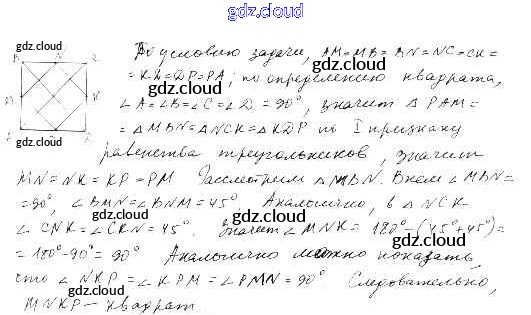 gdz.cloud
gdz.cloud
B N C
По условию задачи, AM=MB=BN=NC=CK=
gdz.cloud
=KD=DP=PA; по определению квадрата,
gdz.cloud
M K
∠A=∠B=∠C=∠D=90°, значит △PAM=
=△MBN=△NCK=△KDP по I признаку
gdz.cloud
gdz.cloud
равенства треугольников, значит
gdz.cloud
MN=NK=KP=PM Рассмотрим △MBN. В нем ∠MBN=
gdz.cloud
=90°, ∠BMN=∠BNM=45°. Аналогично, в △NCK
gdz.cloud
∠CNK=∠CKN=45°. Значит ∠MNK=180°-(45°+45°)=
=180°-90°=90° Аналогично можно показать
gdz.cloud
что ∠NKP=∠KPM=∠PMN=90°. Следовательно,
gdz.cloud
gdz.cloud
MNKP – квадрат